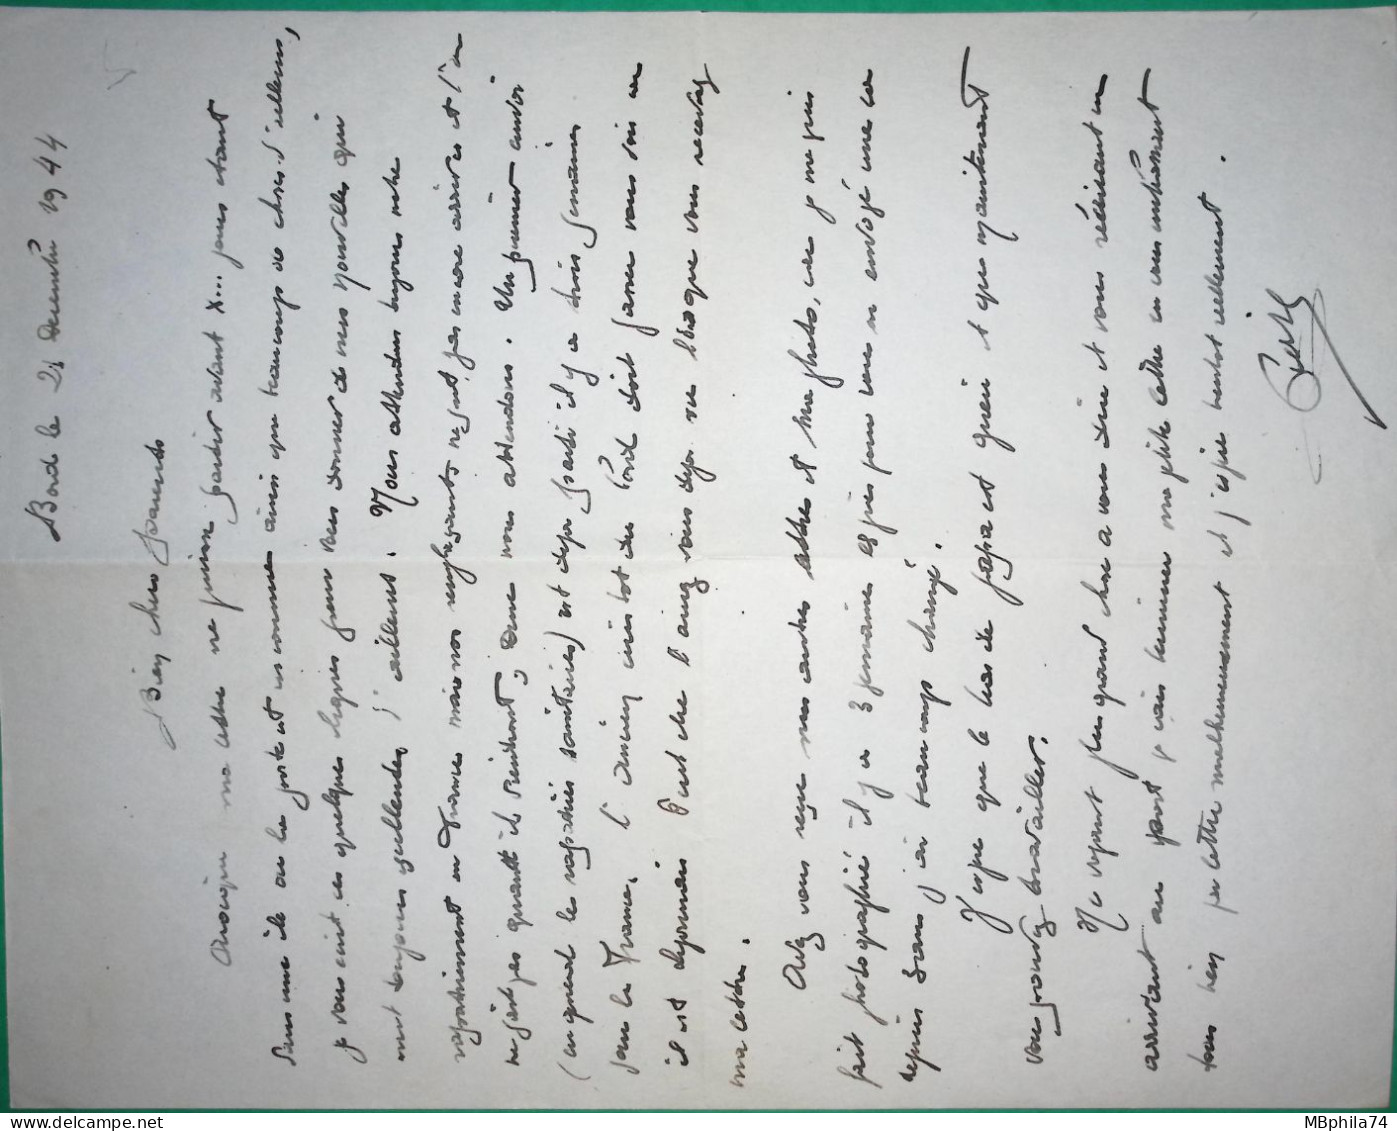 Bord le 21 Decembre 1944
Bien chers parents
Quoique ma lettre ne puisse partir avant X... jours étant
dans une île où la poste est inconnue ainsi que beaucoup de choses d'ailleurs,
je vous écrit ces quelques lignes pour vous donner de mes nouvelles qui
sont toujours excellentes, d'ailleurs. Nous attendons toujours notre
rapatriement en France mais nos remplaçants ne sont pas encore arrivés et l'on
ne sait pas quand ils viendront, donc nous attendons. Un premier convoi
(en général les rapatriés sanitaires) est déjà parti il y a trois semaines
pour la France, l'ancien du bord doit passer vous voir car
il est Peut-être l'aurez vous déjà vu lorsque vous recevrez
ma lettre.
Avez vous reçu mes autres lettres et ma photo, car je me suis
fait photographié il y a 3 semaines et puis pour vous en envoyé une car
depuis 2 ans j'ai beaucoup changé.
J'espère que le bras de papa est guéri et que maintenant
vous pourrez travailler.
Ne voyant plus grand chose a vous dire et vous réécrivant en
arrivant au port je vais terminer ma petite lettre en vous embrassant
tous bien par lettre malheureusement et j'espère bientôt réellement.
MBphila74